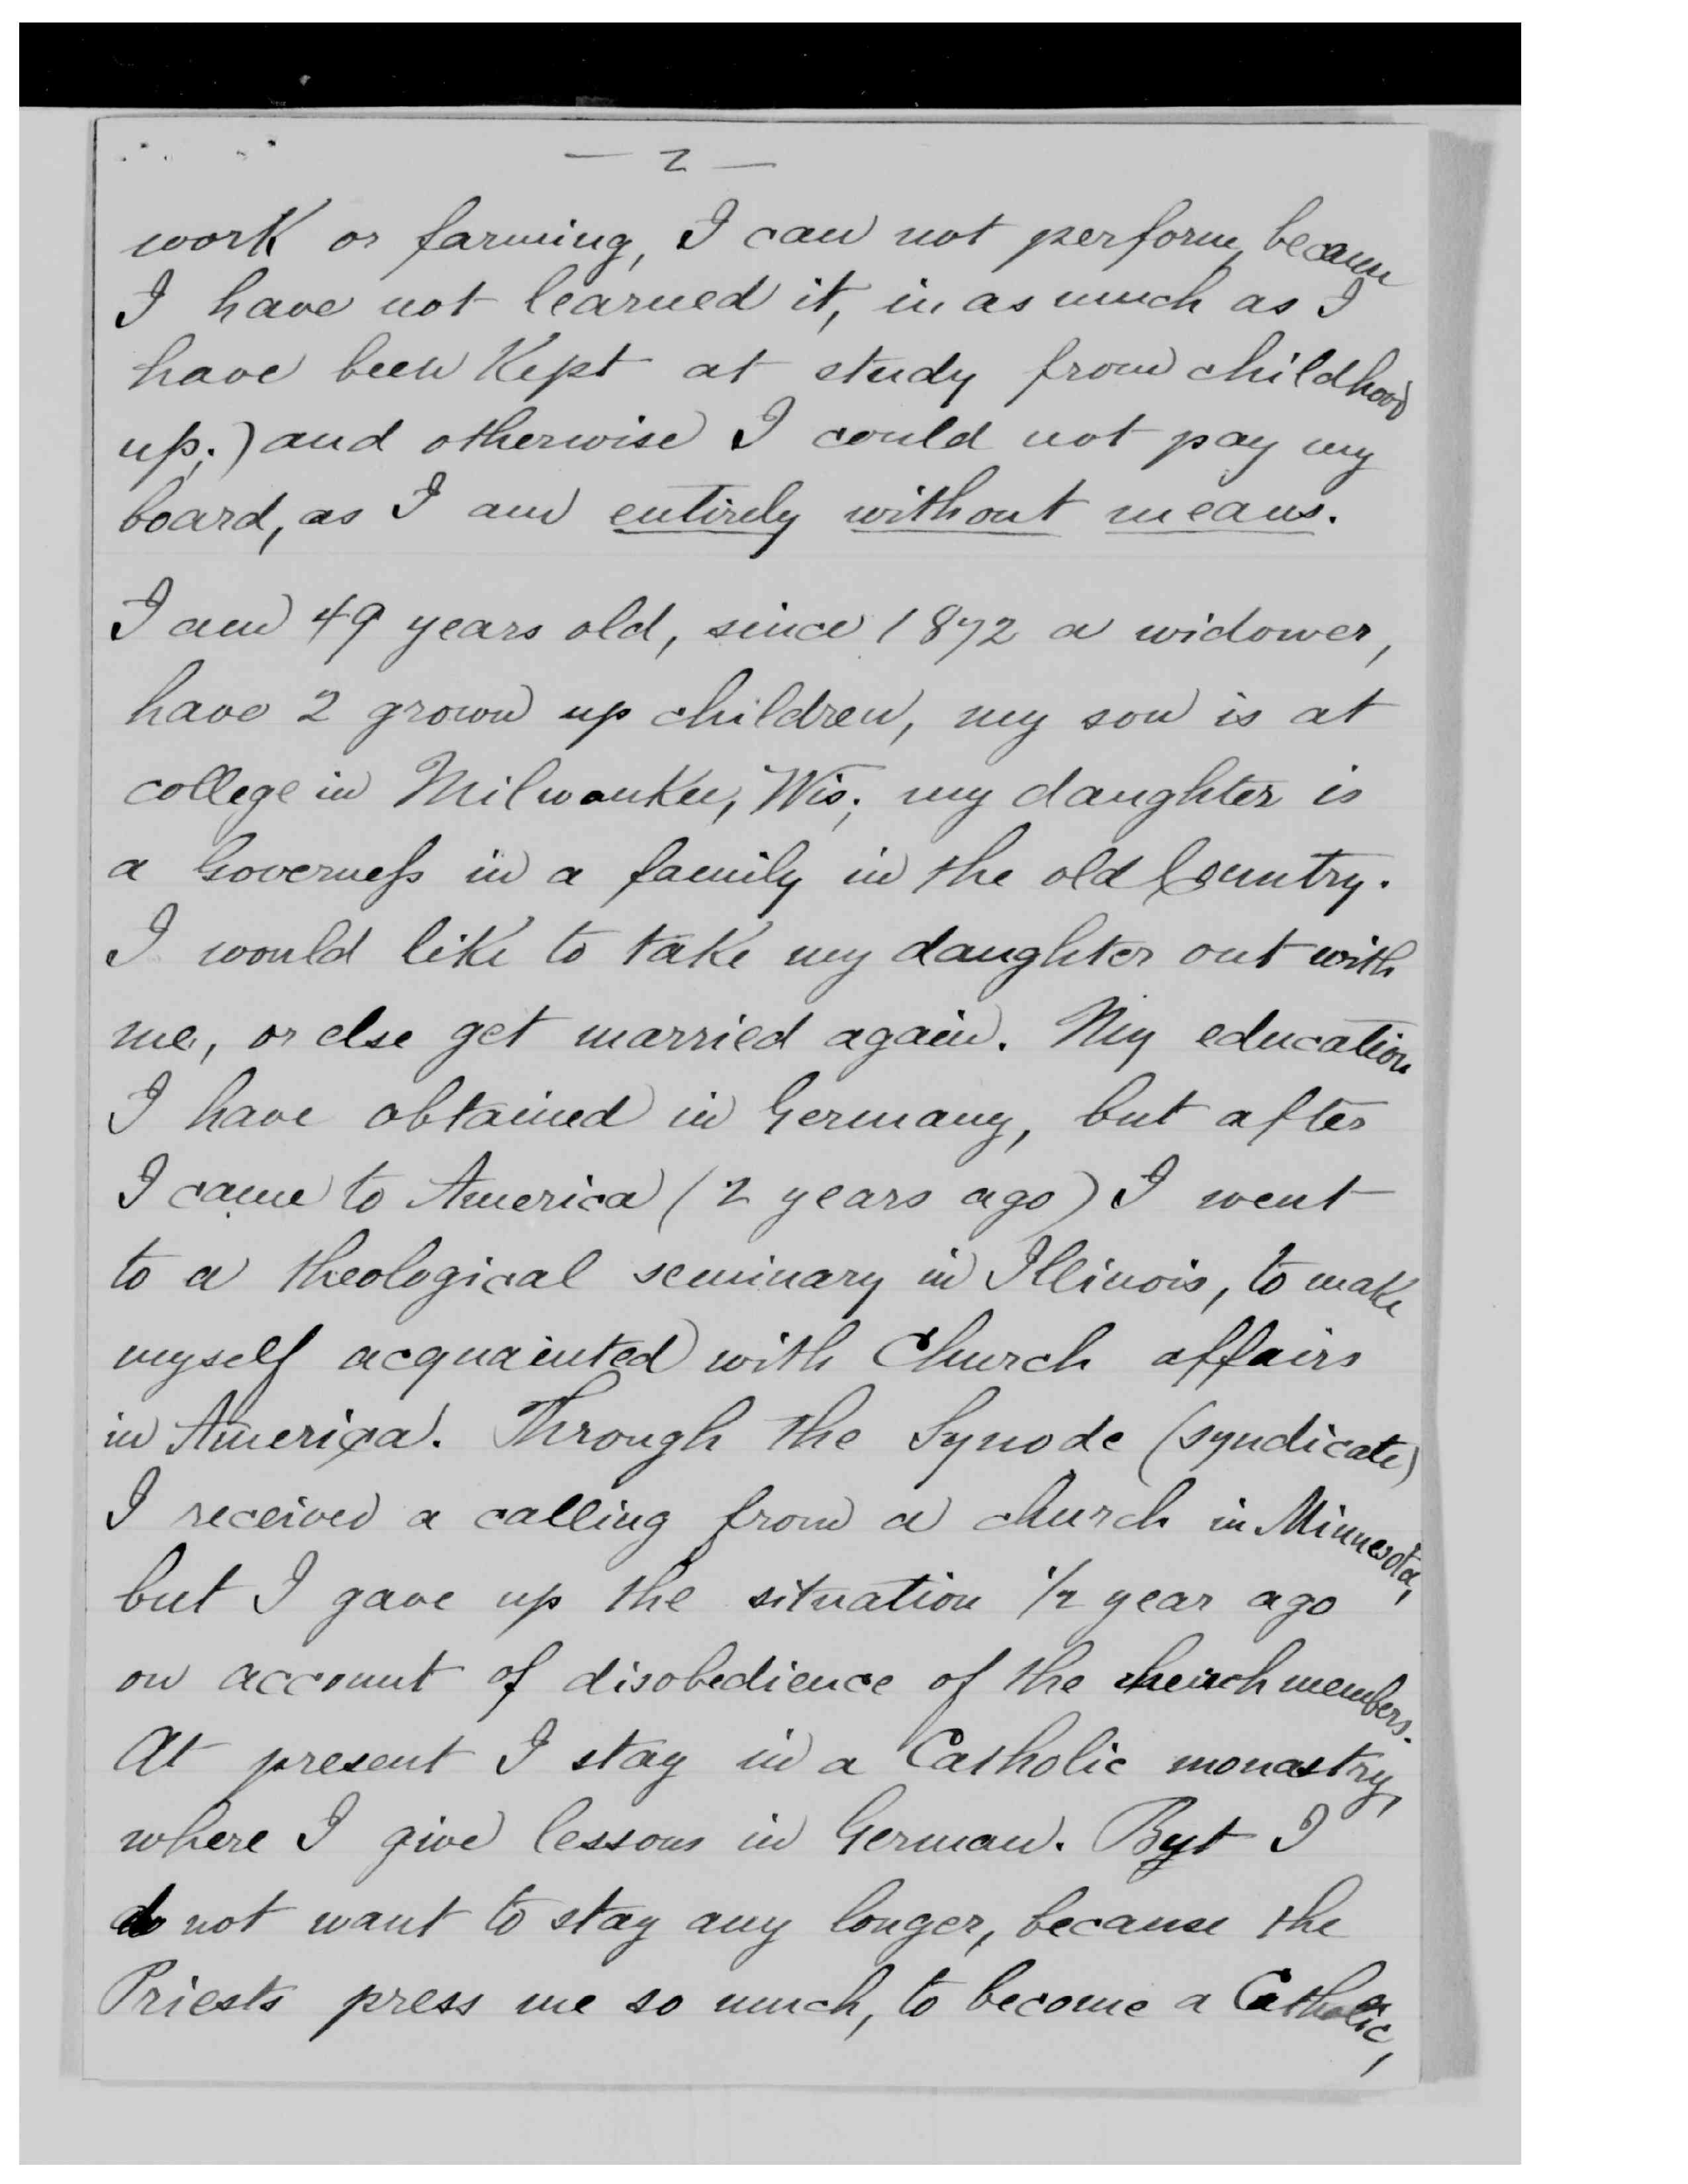 — 2 —
work or farming, I can not perform, because
I have not learned it, in as much as I
have been Kept at study from childhood
up;) and otherwise I could not pay my
board, as I am entirely without means.
I am 49 years old, since 1872 a widower,
have 2 grown up children, my son is at
college in Milwaukee, Wis; my daughter is
a Governess in a family in the old Country.
I would like to take my daughter out with
me, or else get married again. My education
I have obtained in Germany, but after
I came to America (2 years ago) I went
to a theological seminary in Illinois, to make
myself acquainted with Church affairs
in America. Through the Synode (syndicate)
I received a calling from a church in Minnesota,
but I gave up the situation 1/2 year ago
on account of disobedience of the church members.
At present I stay in a Catholic monastry,
where I give lessons in German. But I
do not want to stay any longer, because the
Priests press me so much, to become a Catholic,